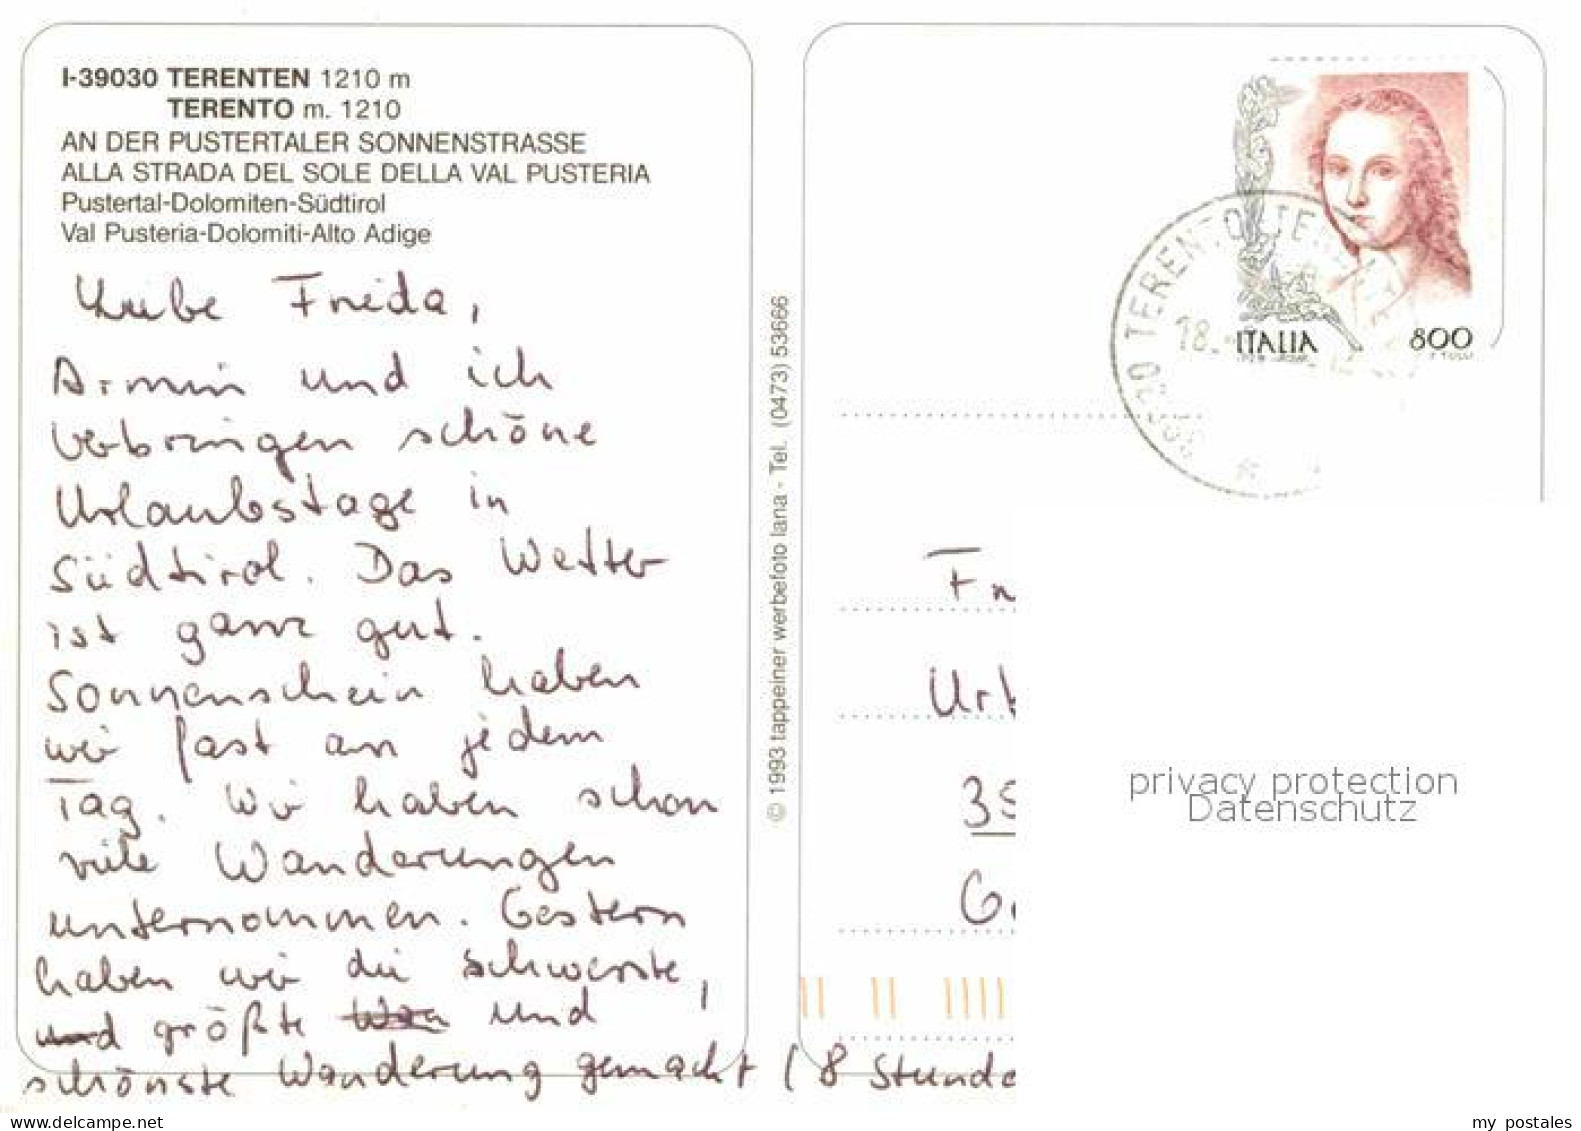 I-39030 TERENTEN 1210 m
TERENTO m. 1210
AN DER PUSTERTALER SONNENSTRASSE
ALLA STRADA DEL SOLE DELLA VAL PUSTERIA
Pustertal-Dolomiten-Südtirol
Val Pusteria-Dolomiti-Alto Adige
Liebe Frieda,
Armin und ich
verbringen schöne
Urlaubstage in
Südtirol. Das Wetter
ist ganz gut.
Sonnenschein haben
wir fast an jedem
Tag. Wir haben schon
viele Wanderungen
unternommen. Gestern
haben wir die schwerste,
und größte und
schönste Wanderung gemacht (8 Stunde
© 1993 tappeiner werbefoto lana - Tel. (0473) 53666
TERENTO
18.
ITALIA
800
privacy protection
Datenschutz
www.delcampe.net
my postales